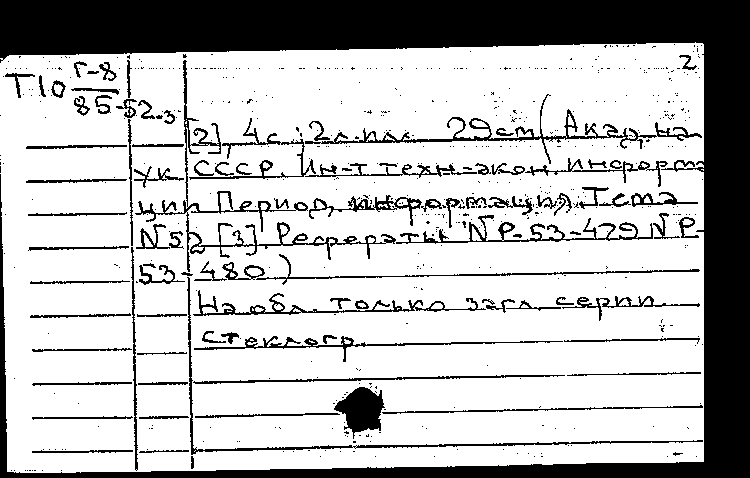 2
Т10 Г-8
85-52.3
[2], 4с; 2л.илл. 29см (Акад. на-
ук СССР. Ин-т техн-экон. информа
ции Период, информация, Тема
N52 [3]. Рефераты NР-53-479 NР-
53-480)
На обл. только загл. серии.
стеклогр.